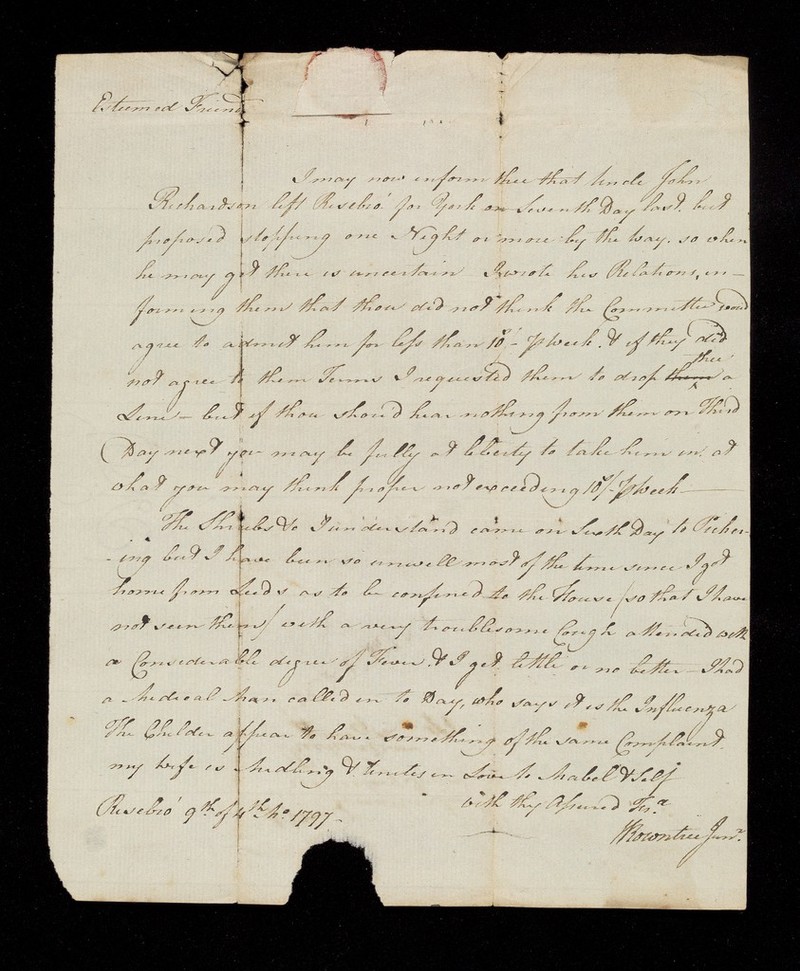 Esteemed Friend
I may now inform thee that Uncle John
Richardson left Risebro' for York on Seventh Day last. but
proposed stopping one Night or more by the way. so when
he may get there is uncertain I wrote his Relations, in-
forming them that thou did not think the Committee woud
agree to admit him for less than 10/- ⅌ Week. & if they did
not agree to them Terms I requested them to drop them thee a
Line – but if thou shoud hear nothing from them on Third
Day next you may be fully at liberty to take him in. at
what you may think proper not exceeding 10/- ⅌ Week —
The Shrubs &c I understand came on Sixth Day to Picker-
-ing but I have been so unwell most of the time since I got
home from Leeds as to be confined to the House (so that I have
not seen them) with a very troublesome Cough attended with
a Considerable degree of Fever. & I get little or no better – I had
a Medical Man called in to Day, who says it is the Influenza
The Childer appear to have something of the same Complaint.
my Wife is Midling & Unites in Love to Mabel & Self
with thy Assured Frd.
Risebro' 9th of 4th Mo 1797 –
Rowntree Junr.